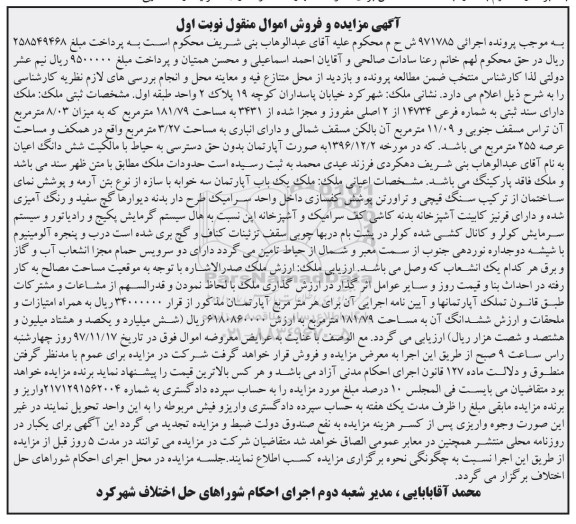 آگهی مزایده و فروش اموال منقول نوبت اول
به موجب پرونده اجرائی ۹۷۱۷۸۵ ش ح م محکوم علیه آقای عبدالوهاب بنی شریف محکوم است به پرداخت مبلغ ۲۵۸۵۴۹۴۶۸
ریال در حق محکوم لهم خانم رعنا سادات صالحی و آقایان احمد اسماعیلی و محسن همتیان و پرداخت مبلغ ۹۵۰۰۰۰۰ ریال نیم عشر
دولتی لذا کارشناس منتخب ضمن مطالعه پرونده و بازدید از محل متنازع فیه و معاینه محل و انجام بررسی های لازم نظریه کارشناسی
را به شرح ذیل اعلام می دارد. نشانی ملک: شهرکرد خیابان پاسداران کوچه ۱۹ پلاک ۲ واحد طبقه اول. مشخصات ثبتی ملک: ملک
دارای سند ثبتی به شماره فرعی ۱۴۷۳۴ از ۲ اصلی مفروز و مجزا شده از ۳۴۳۱ به مساحت ۱۸۱/۷۹ مترمربع که به میزان ۸/۰۳ مترمربع
آن تراس مسقف جنوبی و ۱۱/۰۹ مترمربع آن بالکن مسقف شمالی و دارای انباری به مساحت ۳/۲۷ مترمربع واقع در همکف و مساحت
عرصه ۲۵۵ متر مربع می باشد. که در مورخه ۱۳۹۶/۱۲/۲به صورت آپارتمان بدون حق دسترسی به حیاط با مالکیت شش دانگ اعیان
به نام آقای عبدالوهاب بنی شریف دهکردی فرزند عیدی محمد به ثبت رسیده است حدودات ملک مطابق با متن ظهر سند می باشد
و ملک فاقد پارکینگ می باشد. مشخصات اعیانی ملک: ملک یک باب آپارتمان سه خوابه با سازه از نوع بتن آرمه و پوشش نمای
ساختمان از ترکیب سنگ قیچی و تراورتن پوشش کفسازی داخل واحد سرامیک طرح دار بدنه دیوارها گچ سفید و رنگ آمیزی
شده و دارای قرنیز کابینت آشپزخانه بدنه کاشی کف سرامیک و آشپزخانه این نسبت به هال سیستم گرمایش پکیج و رادیاتور و سیستم
سرمایش کولر و کانال کشی شده کولر در پشت بام دربها چوبی سقف تزئینات کناف و گچ بری شده است درب و پنجره آلومینیوم
با شیشه دوجداره نوردهی جنوب از سمت معبر و شمال از حیاط تامین می گردد دارای دو سرویس حمام مجزا انشعاب آب و گاز
و برق هر کدام یک انشعاب که وصل می باشد. ارزیابی ملک: ارزش ملک صدرالاشاره با توجه به موقعیت مساحت مصالح به کار
رفته در احداث بنا و قیمت روز و سایر عوامل اثر گذار در ارزش گذاری ملک با لحاظ نمودن و قدرالسهم از مشاعات و مشترکات
طبق قانون تملک آپارتمانها و آیین نامه اجرایی آن برای هر متر مربع آپارتمان مذکور از قرار ۳۴۰۰۰۰۰۰ ریال به همراه امتیازات و
ملحقات و ارزش ششدانگ آن به مساحت ۱۸۱/۷۹ مترمربع به ارزش ۶۱۸۰۸۶۰۰۰۰ ریال (شش میلیارد و یکصد و هشتاد میلیون و
هشتصد و شصت هزار ریال) ارزیابی می گردد. مع الوصف با عنایت به عرایض معروضه اموال فوق در تاریخ ۹۷/۱۱/۱۷ روز چهارشنبه
راس ساعت ۹ صبح از طریق این اجرا به معرض مزایده و فروش قرار خواهد گرفت شرکت در مزایده برای عموم با مدنظر گرفتن
منطوق و دلالت ماده ۱۲۷ قانون اجرای احکام مدنی آزاد می باشد و هر کس بالاترین قیمت را پیشنهاد نماید برنده مزایده خواهد
بود متقاضیان می بایست فی المجلس ۱۰ درصد مبلغ مورد مزایده را به حساب سپرده دادگستری به شماره ۲۱۷۱۲۹۱۵۶۲۰۰۴واریز و
برنده مزایده مابقی مبلغ را ظرف مدت یک هفته به حساب سپرده دادگستری واریزو فیش مربوطه را به این واحد تحویل نمایند در غیر
این صورت وجوه واریزی پس از کسر هزینه مزایده به نفع صندوق دولت ضبط و مزایده تجدید می گردد این آگهی برای یکبار در
روزنامه محلی منتشر همچنین در معابر عمومی الصاق خواهد شد متقاضیان شرکت در مزایده می توانند در مدت ۵ روز قبل از مزایده
از طریق این اجرا نسبت به چگونگی نحوه برگزاری مزایده کسب اطلاع نمایند.جلسه مزایده در محل اجرای احکام شوراهای حل
اختلاف برگزار می گردد.
محمد آقابابایی ، مدیر شعبه دوم اجرای احکام شوراهای حل اختلاف شهرکرد